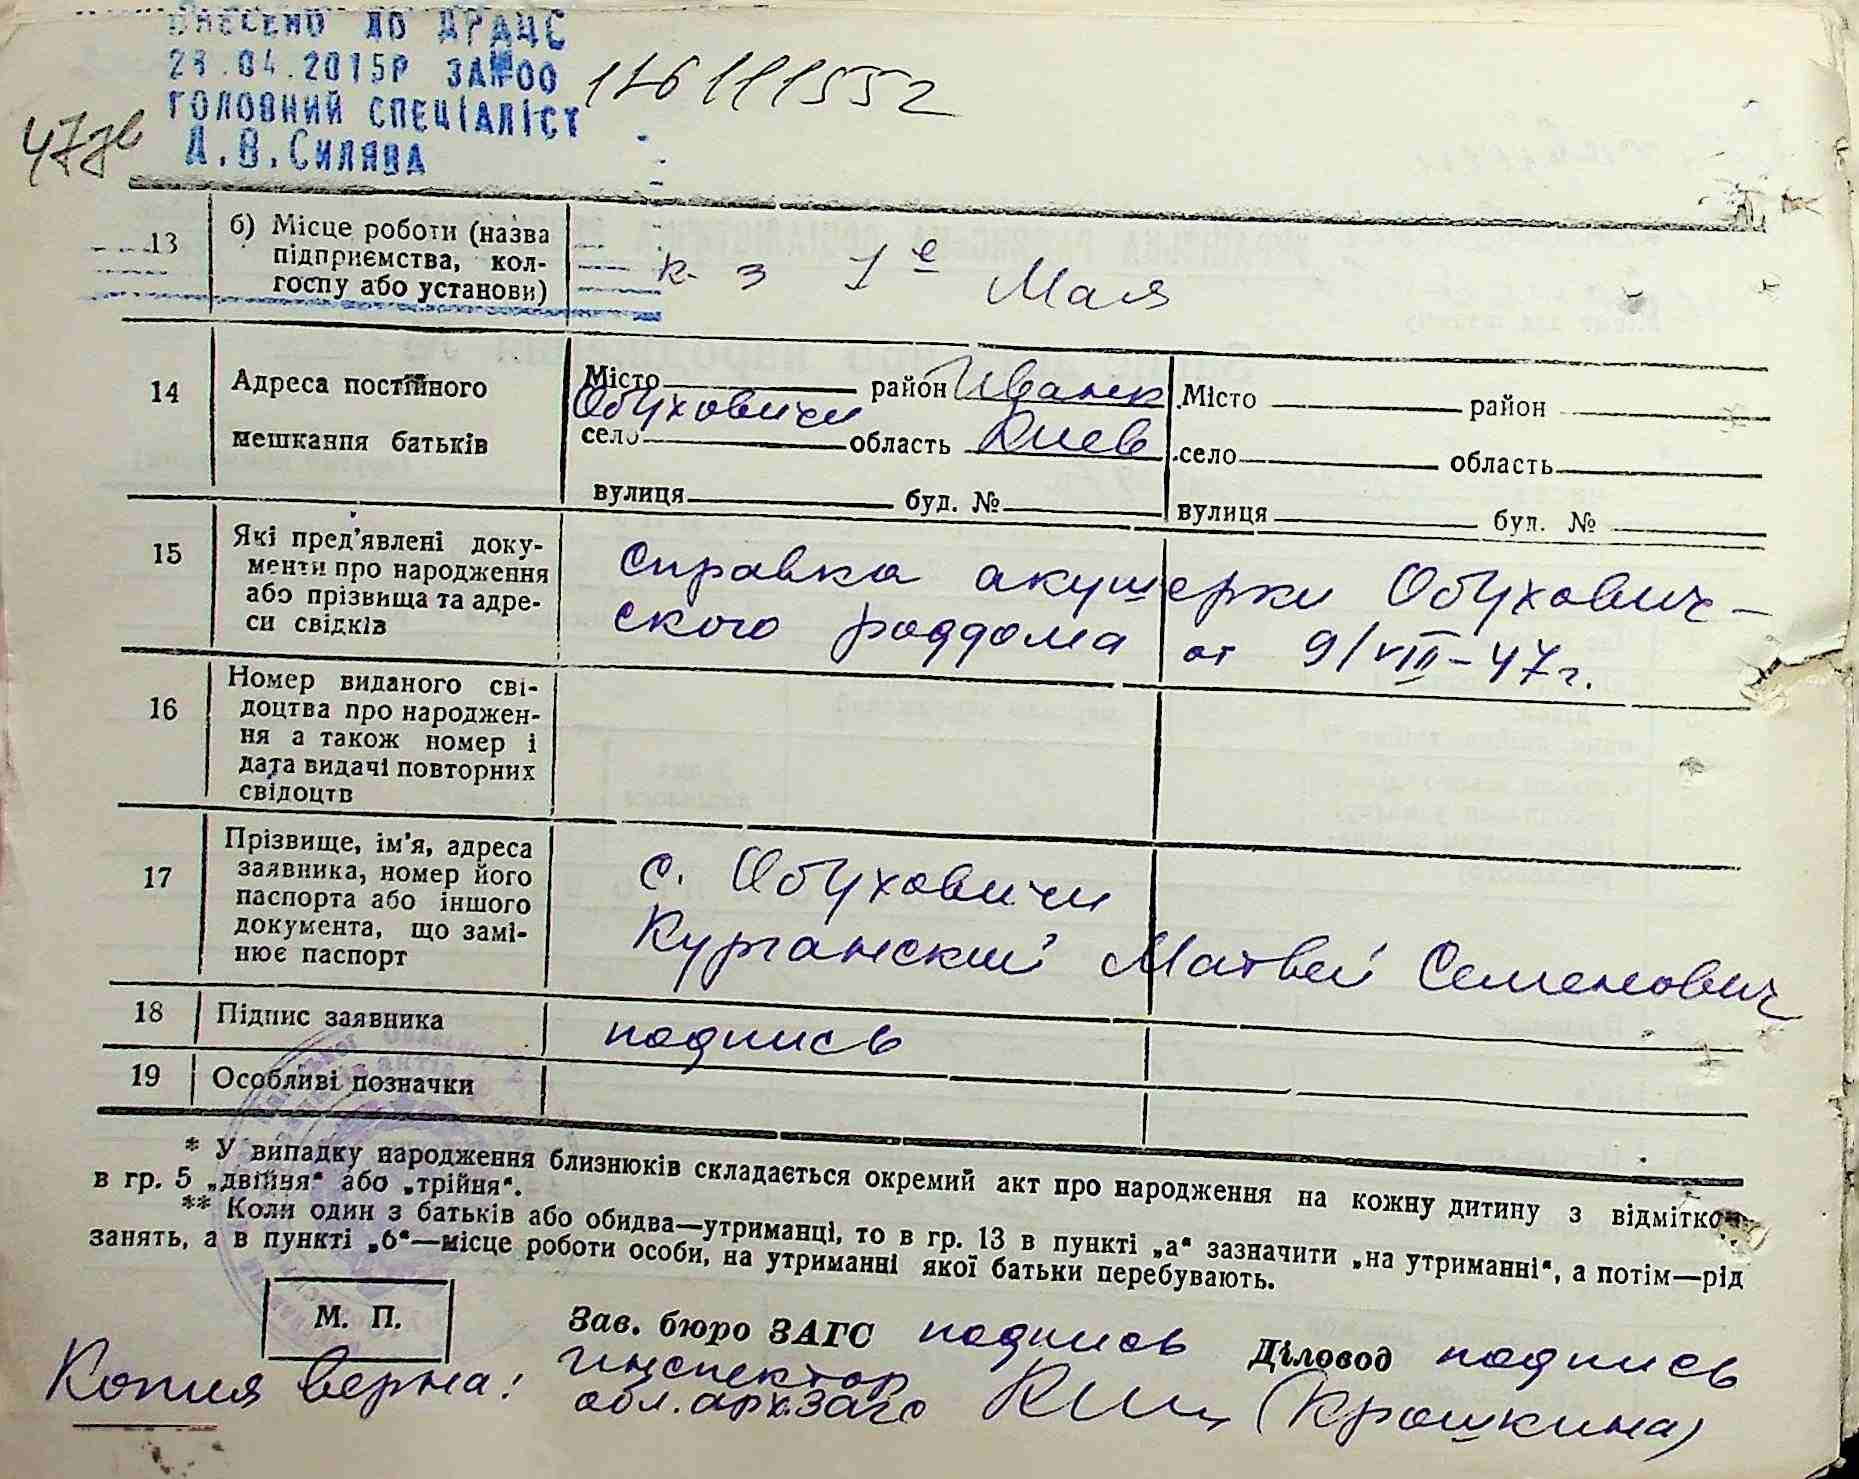 ВНЕСЕНО ДО ДРАЦС
23.04.2015Р ЗА №00 126111552
ГОЛОВНИЙ СПЕЦІАЛІСТ
А.В.Силява
13
б) Місце роботи (назва
підприємства, кол-
госпу або установи)
к-з 1е Мая
14
Адреса постійного
мешкання батьків
Місто район Иванк
село Обуховичи область Киев
вулиця буд. №
Місто район
село область
вулиця буд. №
15
Які пред’явлені доку-
менти про народження
або прізвища та адре-
си свідків
Справка акушерки Обухович-
ского роддома от 9/VIII-47г.
16
Номер виданого сві-
доцтва про народжен-
ня а також номер і
дата видачі повторних
свідоцтв
17
Прізвище, ім’я, адреса
заявника, номер його
паспорта або іншого
документа, що замі-
нює паспорт
с. Обуховичи
Курганский Матвей Семенович
18
Підпис заявника
подпись
19
Особливі позначки
* У випадку народження близнюків складається окремий акт про народження на кожну дитину з відміткою
в гр. 5 „двійня“ або „трійня“.
** Коли один з батьків або обидва—утриманці, то в гр. 13 в пункті „а“ зазначити „на утриманні“, а потім—рід
занять, а в пункті „б“—місце роботи особи, на утриманні якої батьки перебувають.
М. П.
Зав. бюро ЗАГС подпись Діловод подпись
Копия верна: инспектор
обл.арх.загс (Крошкина)